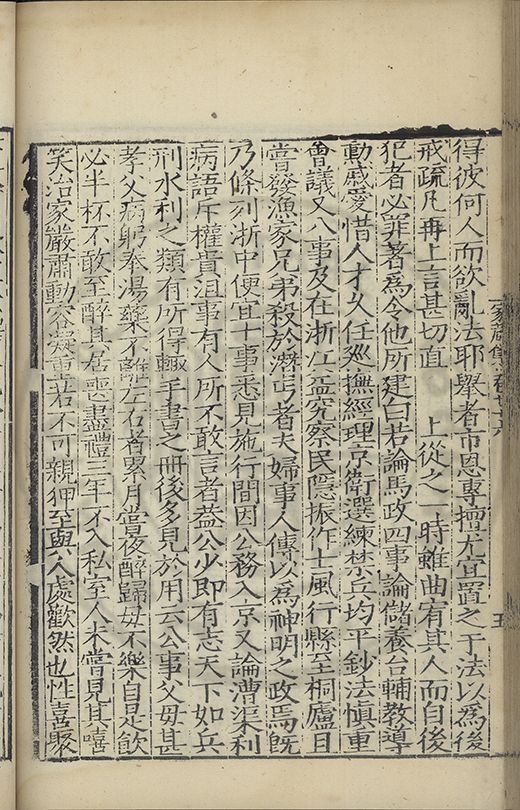 得彼何人而欲亂法耶舉者市恩專擅尤宜置之于法以爲後
戒疏凡再上言甚切直　上從之一時雖曲宥其人而自後
犯者必罪著爲令他所建白若論馬政四事論儲養台輔教導
動戚愛惜人才久任廵撫經理京衛選練禁兵均平鈔法慎重
會議又八事及在浙江益究察民隱振作士風行縣至桐廬目
嘗發漁家兄弟殺於潜丐者夫婦事人傳以爲神明之政焉旣
乃條列浙中便宜十事悉見施行間因公務入京又論漕渠利
病語斥權貴沮事有人所不敢言者葢公少即有志天下如兵
刑水利之類有所得輙手書之冊後多見於用云公事父毋甚
孝父病躬奉湯藥不離左右者累月嘗夜醉歸毋不樂自是飲
必半杯不敢至醉其居喪盡禮三年不入私室人未嘗見其嘻
笑治家嚴肅動容凝重若不可親狎至與人處歡然也性喜聚
家藏集卷七十六
五